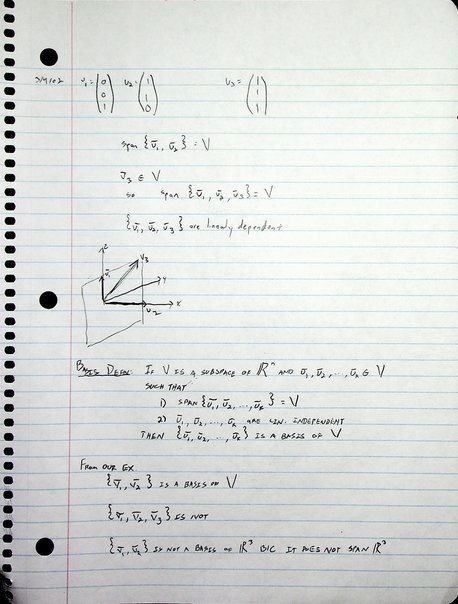 3/4/02 v̄₁ = (0 0 1) v̄₂ = (1 1 0) v̄₃ = (1 1 1)
span {v̄₁, v̄₂} = V
v̄₃ ∈ V
so span {v̄₁, v̄₂, v̄₃} = V
{v̄₁, v̄₂, v̄₃} are linearly dependent
z
v̄₁ v₃
y
x
v₂
BASIS DEFN: IF V IS A SUBSPACE OF ℝⁿ AND v̄₁, v̄₂, ..., v̄ₖ ∈ V
SUCH THAT
1) SPAN {v̄₁, v̄₂, ..., v̄ₖ} = V
2) v̄₁, v̄₂, ..., v̄ₖ ARE LIN. INDEPENDENT
THEN {v̄₁, v̄₂, ..., v̄ₖ} IS A BASIS OF V
FROM OUR EX.
{v̄₁, v̄₂} IS A BASIS OF V
{v̄₁, v̄₂, v̄₃} IS NOT
{v̄₁, v̄₂} IS NOT A BASIS OF ℝ³ B/C IT DOES NOT SPAN ℝ³